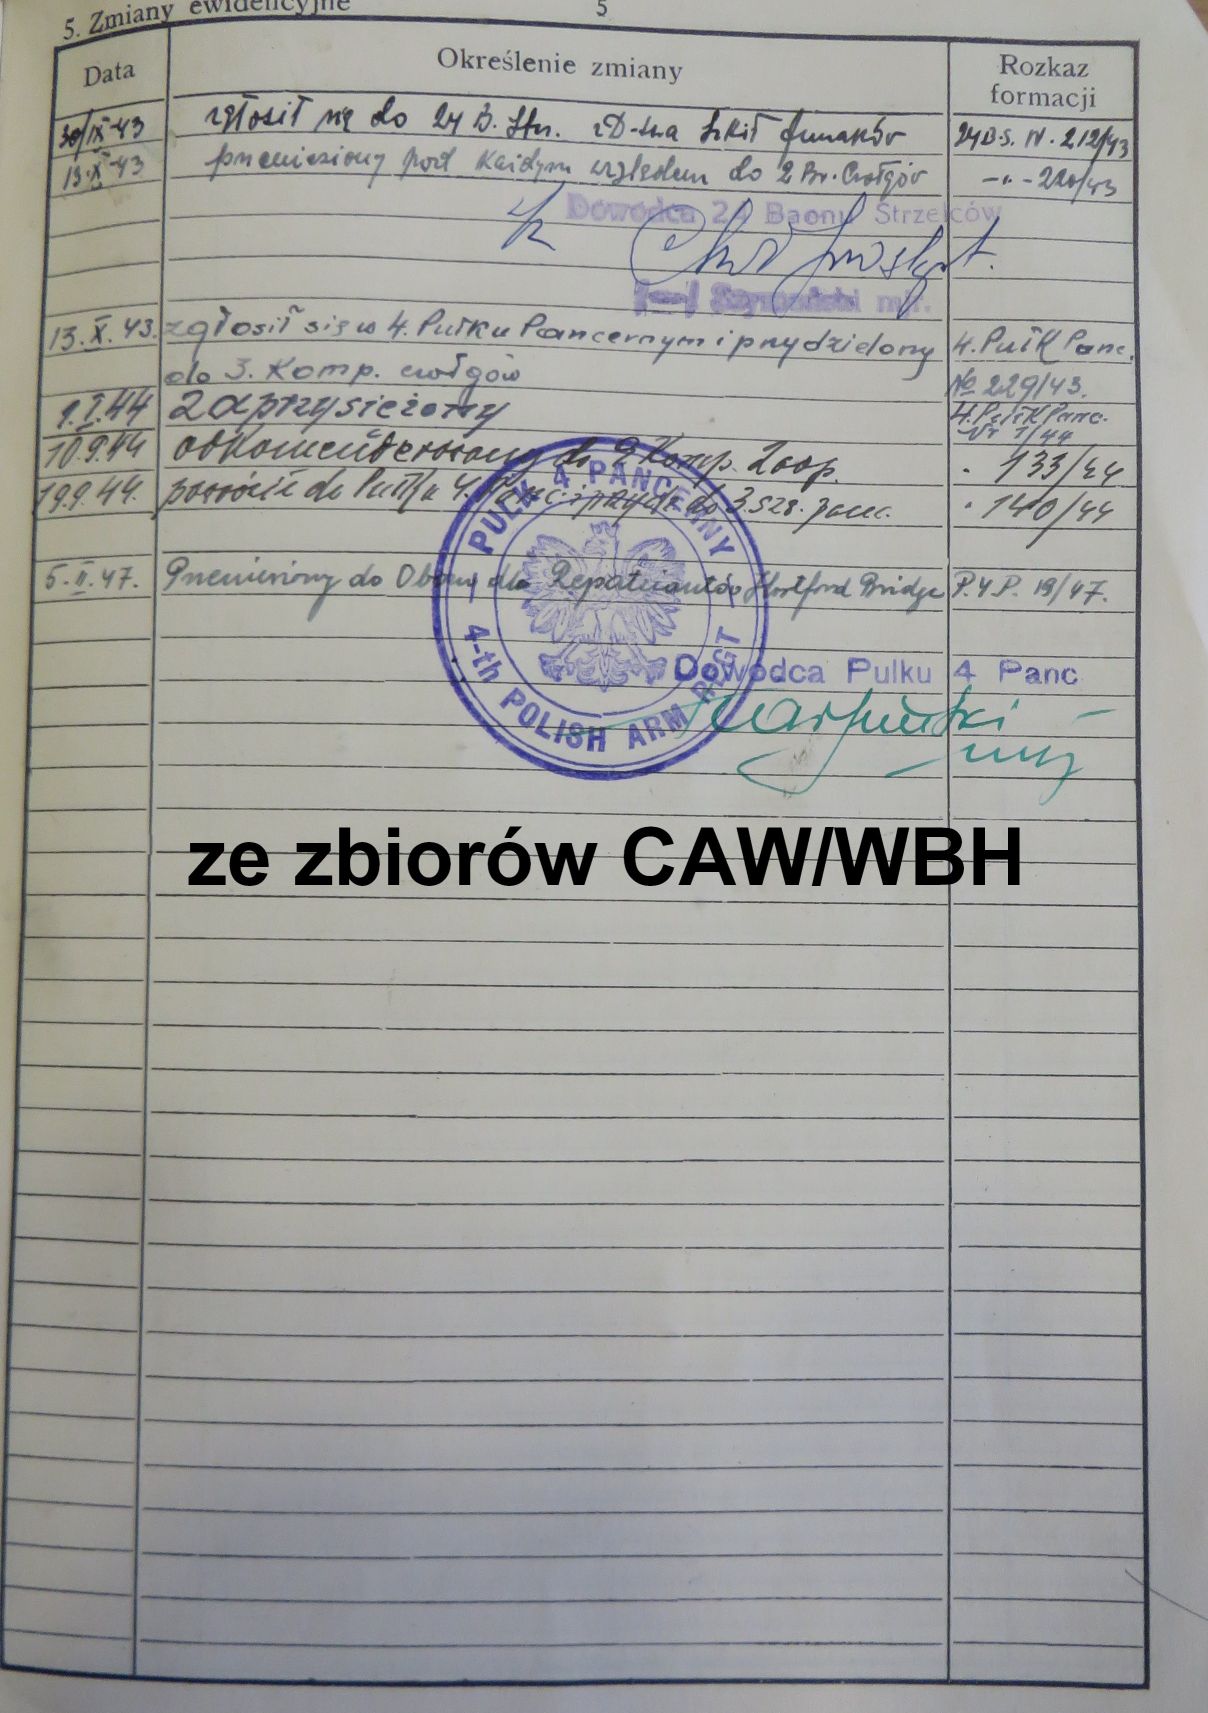 5. Zmiany ewidencyjne
5
Data Określenie zmiany Rozkaz formacji
30/IX-43 zgłosił się do 24 B. Str. z D-twa Szkół Junaków 24 B.S. N. 212/43
13.X-43 przeniesiony pod każdym względem do 2 Br. Czołgów -"- 220/43
Dowódca 24 Baonu Strzelców
Szymański mjr.
13.X.43. zgłosił się w 4. Pułku Pancernym i przydzielony 4. Pułk Panc.
do 3. Komp. czołgów № 229/43.
1.I.44 zaprzysiężony 4. Pułk Panc. Nr 1/44
10.9.44 odkomenderowany do 9 Komp. Zaop. " 133/44
19.9.44. powrócił do Pułku 4. Panc. i przydz. do 3. szw. panc. " 140/44
5.II.47. Przeniesiony do Obozu dla Repatriantów Hartford Bridge P.4.P. 19/47.
PUŁK 4 PANCERNY
4-th POLISH ARM REGT
Dowódca Pułku 4 Panc
ze zbiorów CAW/WBH